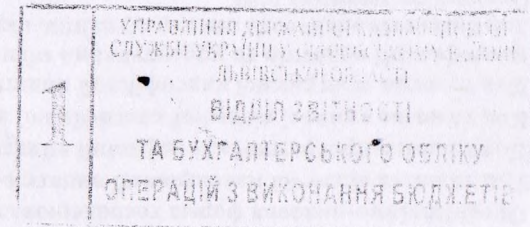 УПРАВЛІННЯ ДЕРЖАВНОЇ КАЗНАЧЕЙСЬКОЇ
СЛУЖБИ УКРАЇНИ У РАЙОНІ
ЛЬВІВСЬКОЇ ОБЛАСТІ
ВІДДІЛ ЗВІТНОСТІ
ТА БУХГАЛТЕРСЬКОГО ОБЛІКУ
ОПЕРАЦІЙ З ВИКОНАННЯ БЮДЖЕТІВ